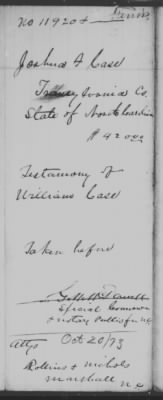 No 11920
Joshua A Case
Transylvania Co.
State of North Carolina
$420.00
Testamony of
William Case
Taken before
Special Commr
& Notary Public for N.C.
Attys Oct 20/73
Rollins & Nichols
Marshall N.C